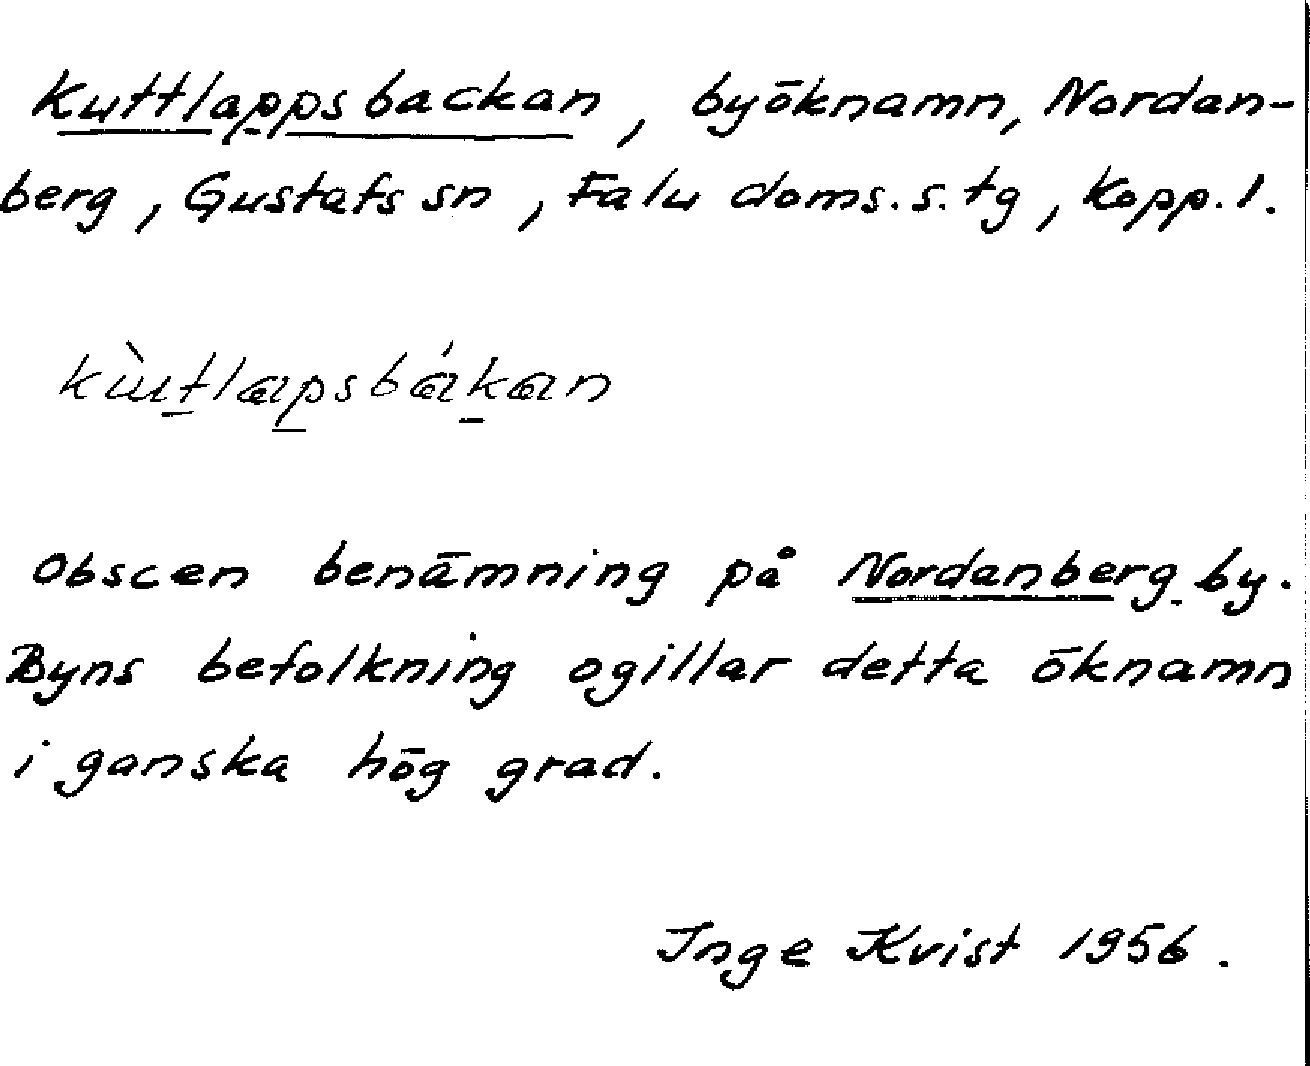 Kuttlappsbackan, byöknamn, Nordan-
berg, Gustafs sn, Falu doms.s.tg, Kopp.l.
kùtlapsbákan
Obscen benämning på Nordanberg by.
Byns befolkning ogillar detta öknamn
i ganska hög grad.
Inge Kvist 1956.